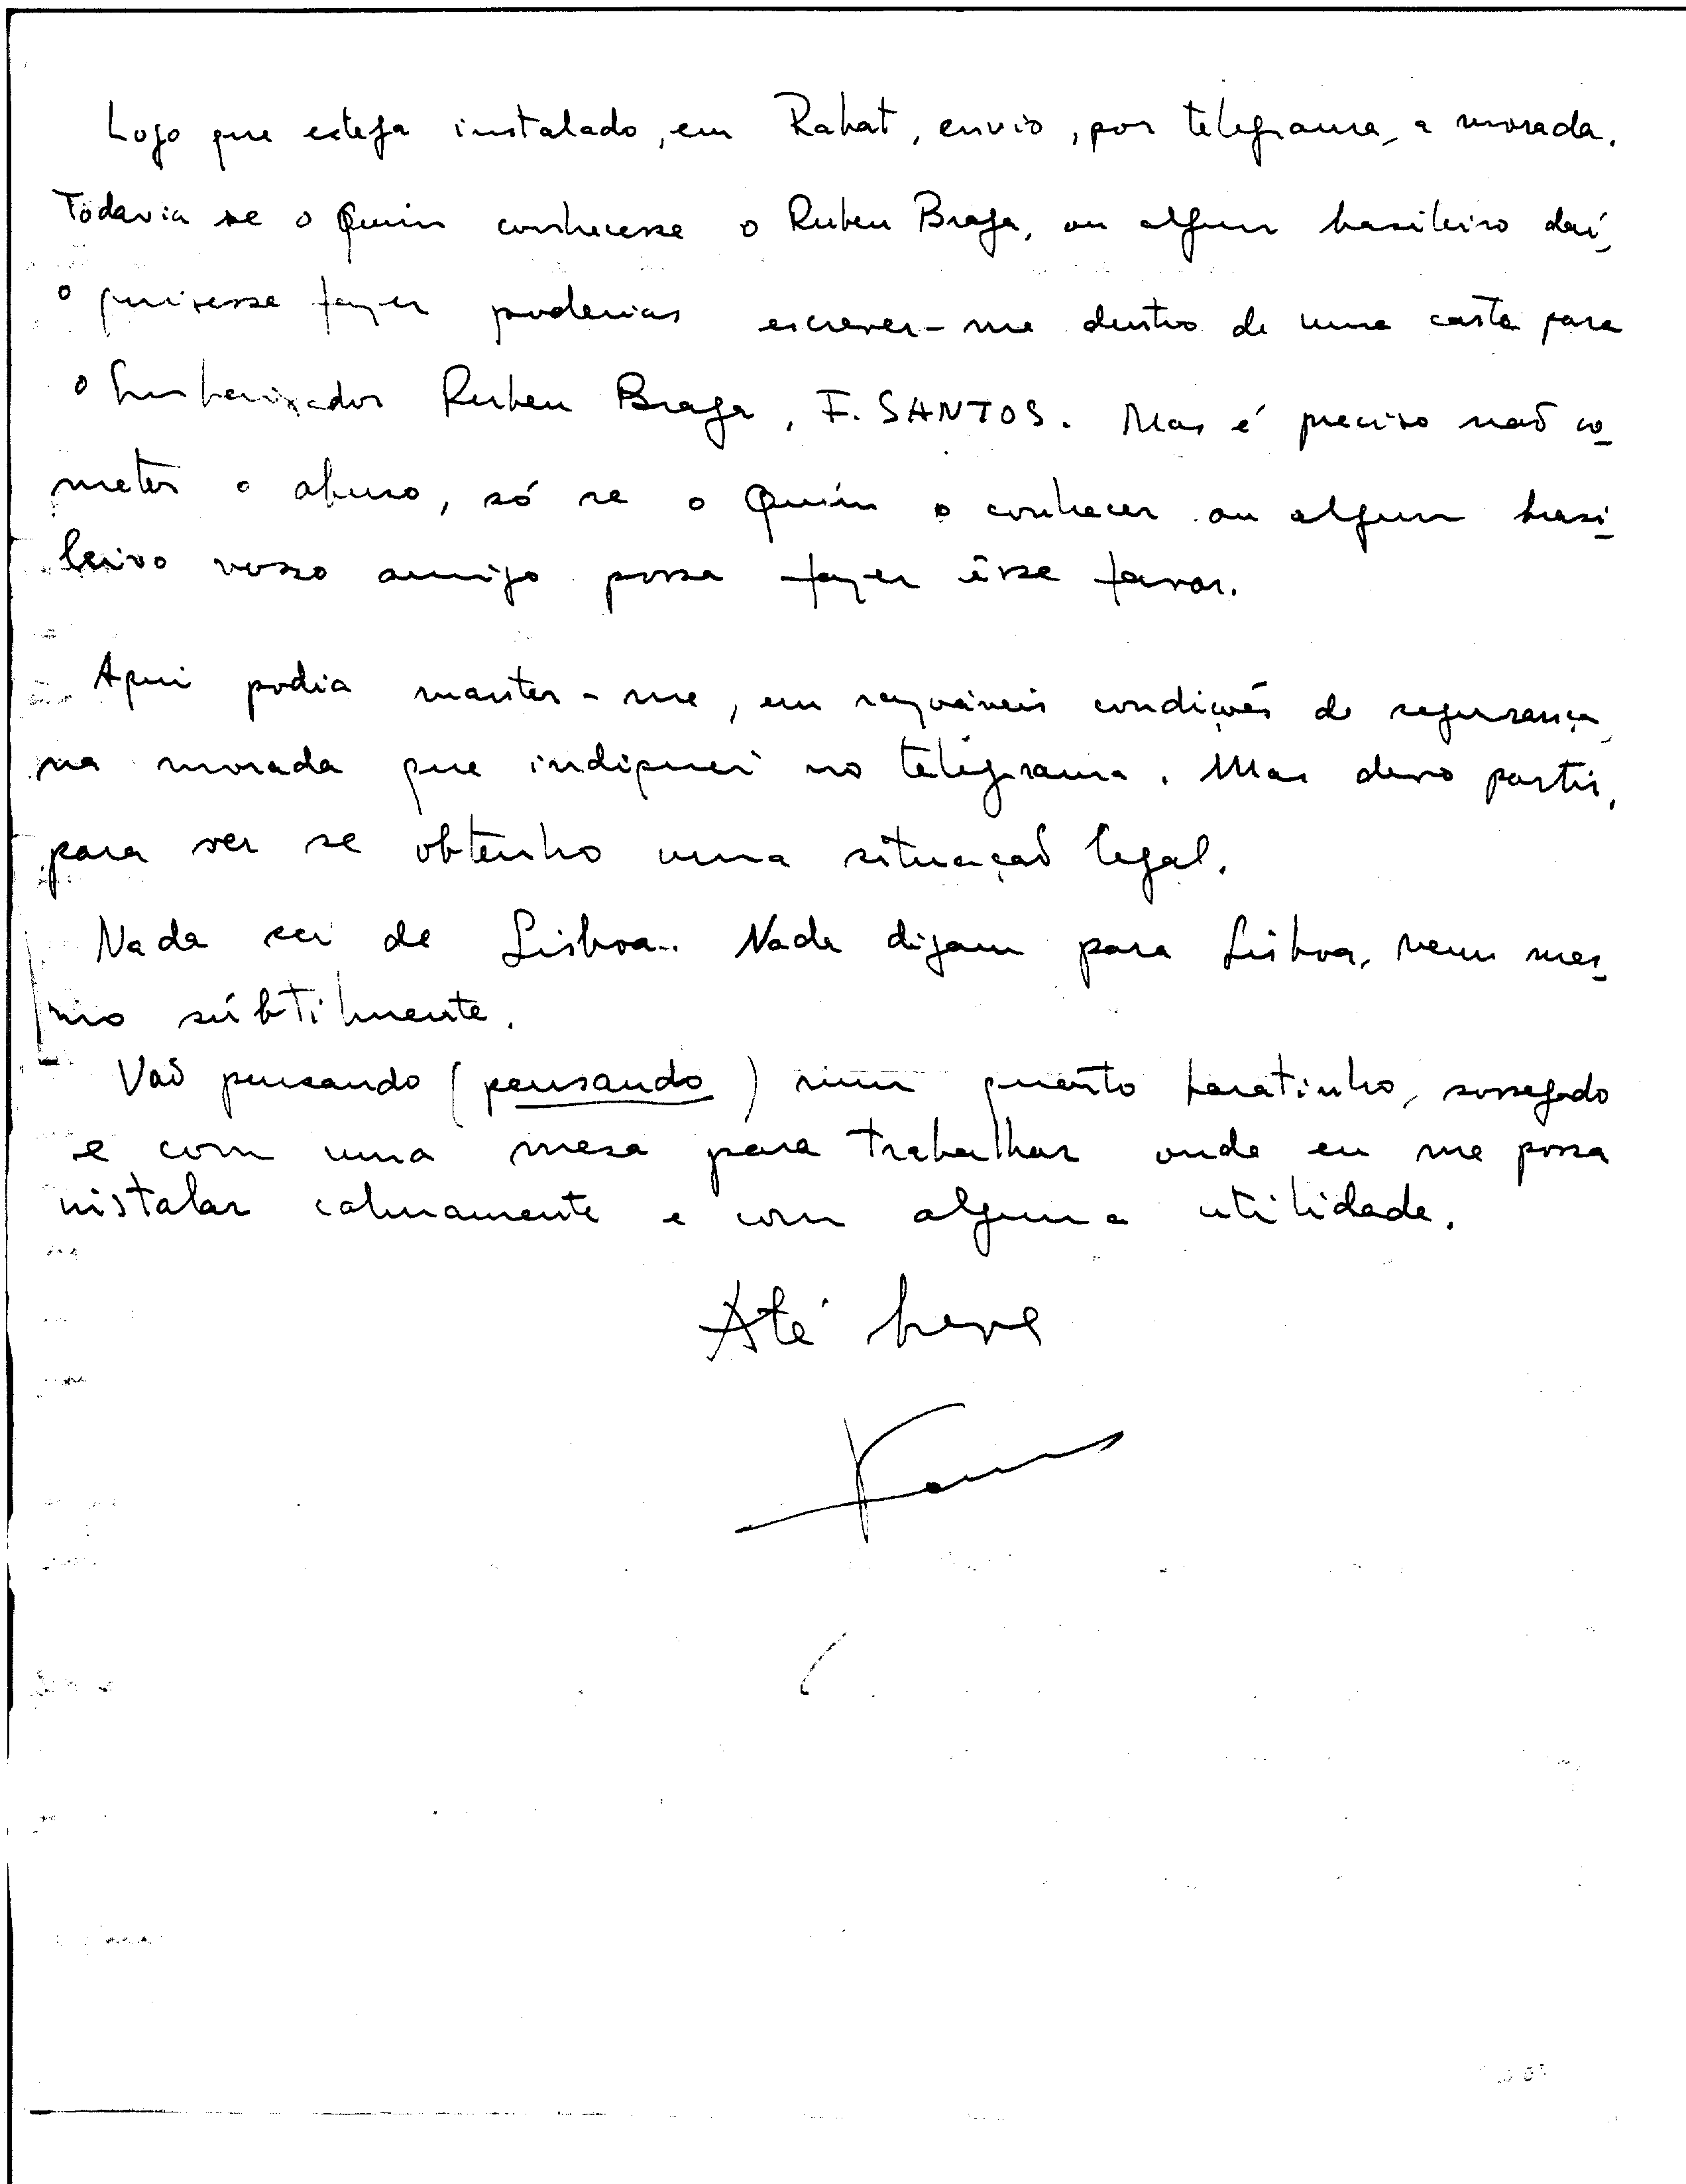 Logo que esteja instalado, em Rabat, envio, por telegrama, a morada.
Todavia se o Quim conhecesse o Ruben Braga, ou algum brasileiro daí,
o quisesse fazer poderias escrever-me dentro de uma carta para
o Embaixador Ruben Braga, F. SANTOS. Mas é preciso naõ co
meter o abuso, só se o Quim o conhecer ou algum brasi
leiro vosso amigo possa fazer êsse favor.
Aqui podia manter-me, em razoáveis condições de segurança,
na morada que indiquei no telegrama. Mas devo partir,
para ver se obtenho uma situaçaõ legal.
Nada sei de Lisboa. Nada digam para Lisboa, nem mes
mo súbtilmente.
Vaõ pensando (pensando) num quarto baratinho, sossegado
e com uma mesa para trabalhar onde eu me possa
instalar calmamente e com alguma utilidade.
Até breve